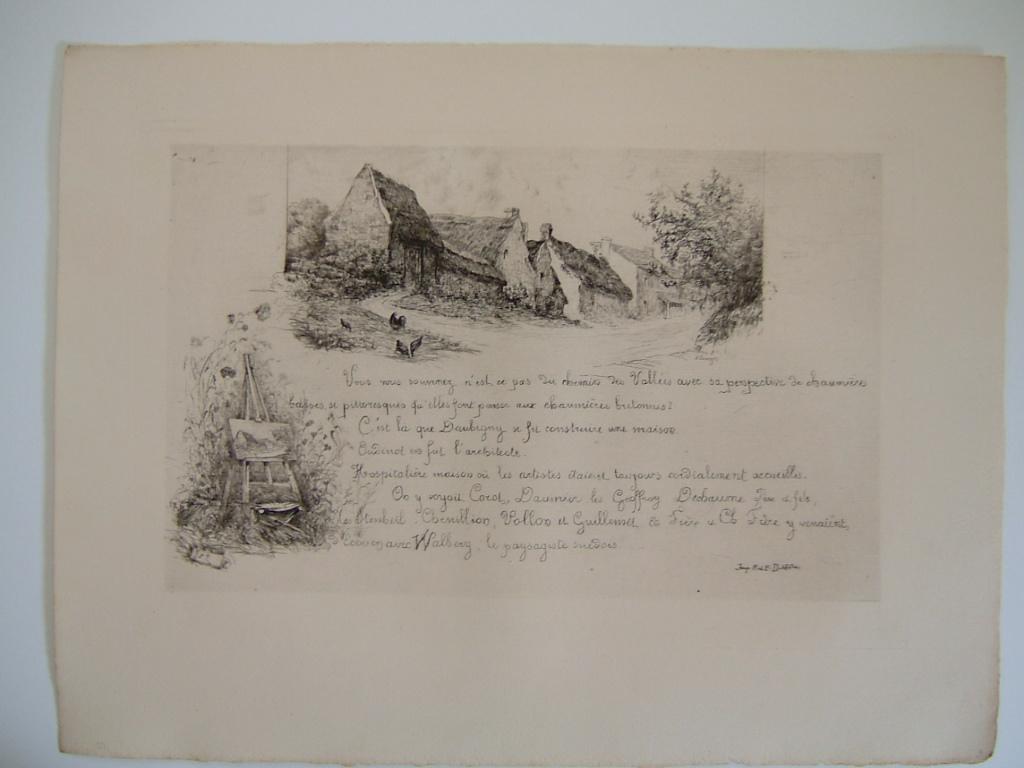 Vous vous souvenez, n'est ce pas du chemin des Vallées avec sa perspective de chaumières
basses, si pittoresques qu'elles font penser aux chaumières bretonnes?
C'est là que Daubigny se fit construire une maison.
Oudinot en fut l'architecte.
Hospitalière maison où les artistes étaient toujours cordialement accueillis.
On y voyait Corot, Daumier les Geoffroy Dechaume Père et fils,
les Steinheil, Chevillion, Vollon et Guillemet, Ed Frère et Ch Frère y venaient,
avec Walberg, le paysagiste suédois.